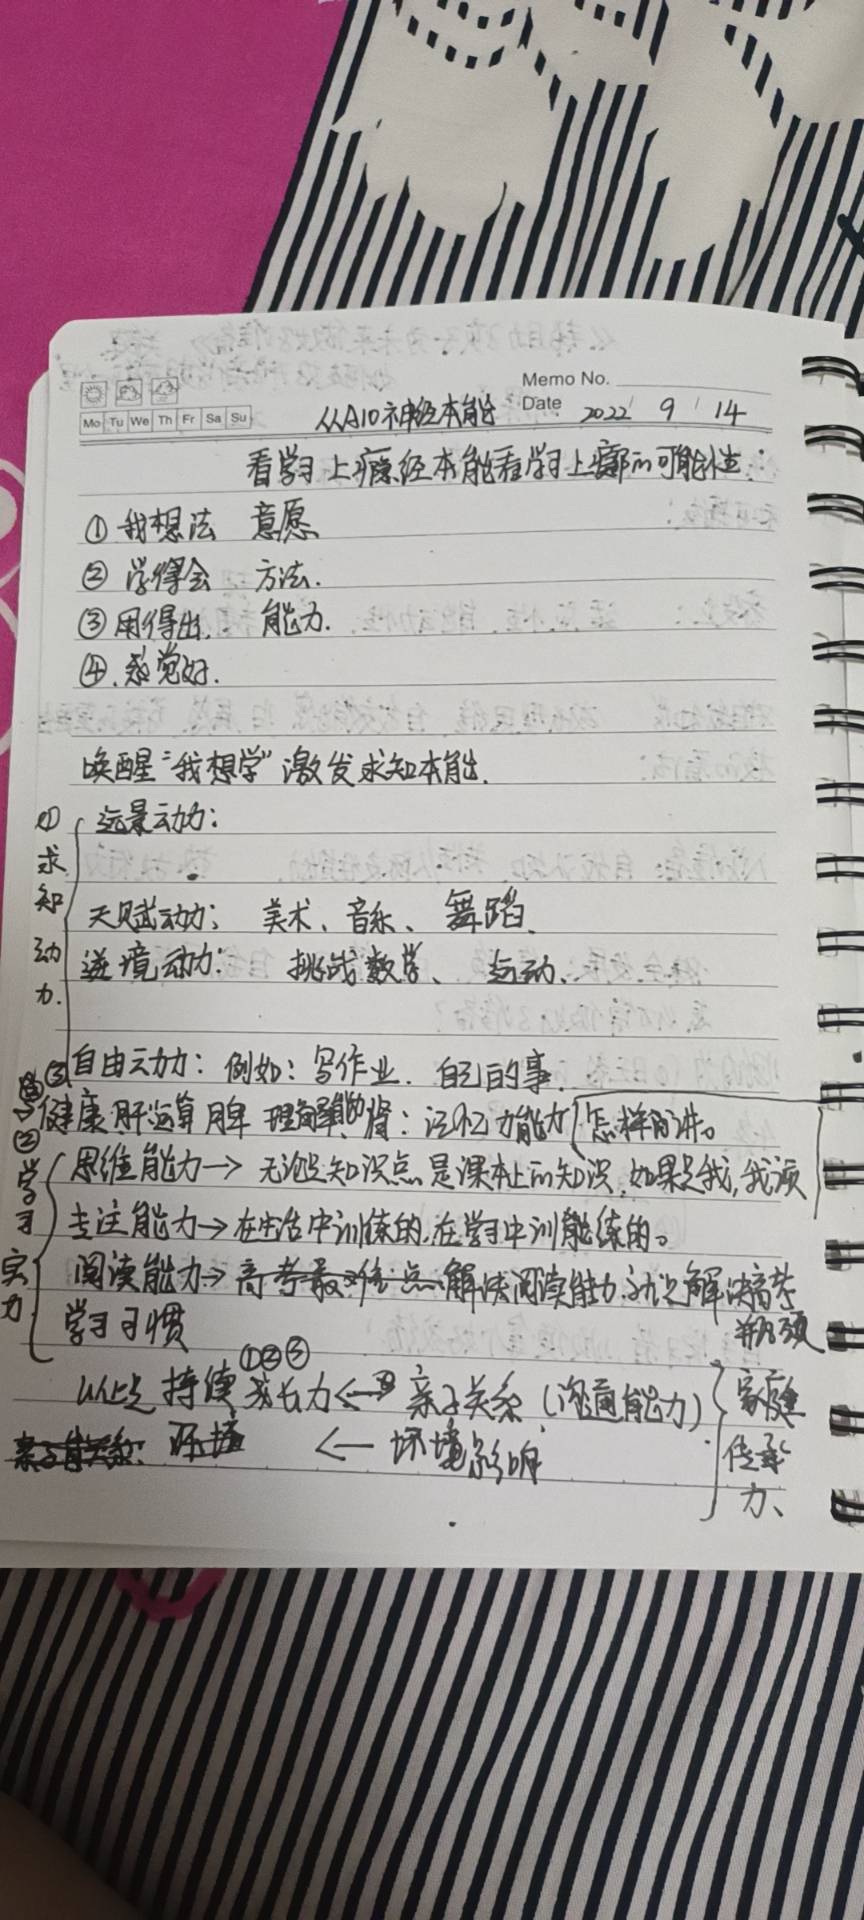 Memo No.
Mo Tu We Th Fr Sa Su
Date 2022 / 9 / 14
从A10神经本能
看学习上瘾经本能看学习上瘾的可能性:
① 我想法 意愿
② 学得会 方法.
③ 用得出. 能力.
④. 感觉好.
唤醒“我想学”激发求知本能.
① 求知动力.
远景动力:
天赋动力: 美术、音乐、舞蹈、
逆境动力: 挑战数学、运动、
③ 自由动力: 例如: 写作业. 自己的事.
健康 肝运算 脾 理解能 肾: 记忆力能力 怎样的讲。
② 学习实力
思维能力→ 无论是知识点是课本上的知识, 如果是我, 我颂
专注能力→在生活中训练的,在学习中训能练的。
阅读能力→高考最难点 解决阅读能力就是解决高考
瓶颈
学习习惯
①②③
以上是 持续成长力← 亲子关系 (沟通能力)
环境 ← 环境影响
家庭传承力、